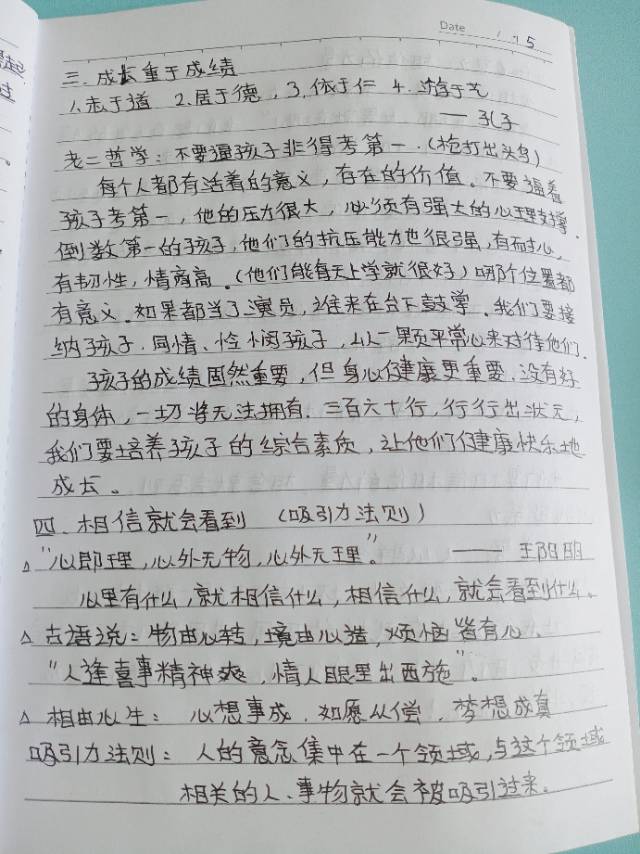 Date 1 75
三. 成长重于成绩
1.志于道 2.居于德, 3.依于仁 4. 游于艺
—— 孔子
老二哲学: 不要逼孩子非得考第一. (枪打出头鸟)
每个人都有活着的意义, 存在的价值. 不要逼着
孩子考第一, 他的压力很大, 必须有强大的心理支撑.
倒数第一的孩子, 他们的抗压能力也很强, 有耐心,
有韧性, 情商高. (他们能每天上学就很好) 哪个位置都
有意义. 如果都当了演员, 谁来在台下鼓掌. 我们要接
纳孩子. 同情、怜悯孩子, 以一颗平常心来对待他们.
孩子的成绩固然重要, 但身心健康更重要. 没有好
的身体, 一切将无法拥有. 三百六十行, 行行出状元,
我们要培养孩子的综合素质, 让他们健康快乐地
成长。
四. 相信就会看到 (吸引力法则)
△ "心即理, 心外无物, 心外无理"。 —— 王阳明
心里有什么, 就相信什么, 相信什么, 就会看到什么。
△ 古语说: 物由心转, 境由心造, 烦恼皆有心、
"人逢喜事精神爽, 情人眼里出西施"。
△ 相由心生: 心想事成. 如愿从偿. 梦想成真
吸引力法则: 人的意念集中在一个领域, 与这个领域
相关的人、事物就会被吸引过来。